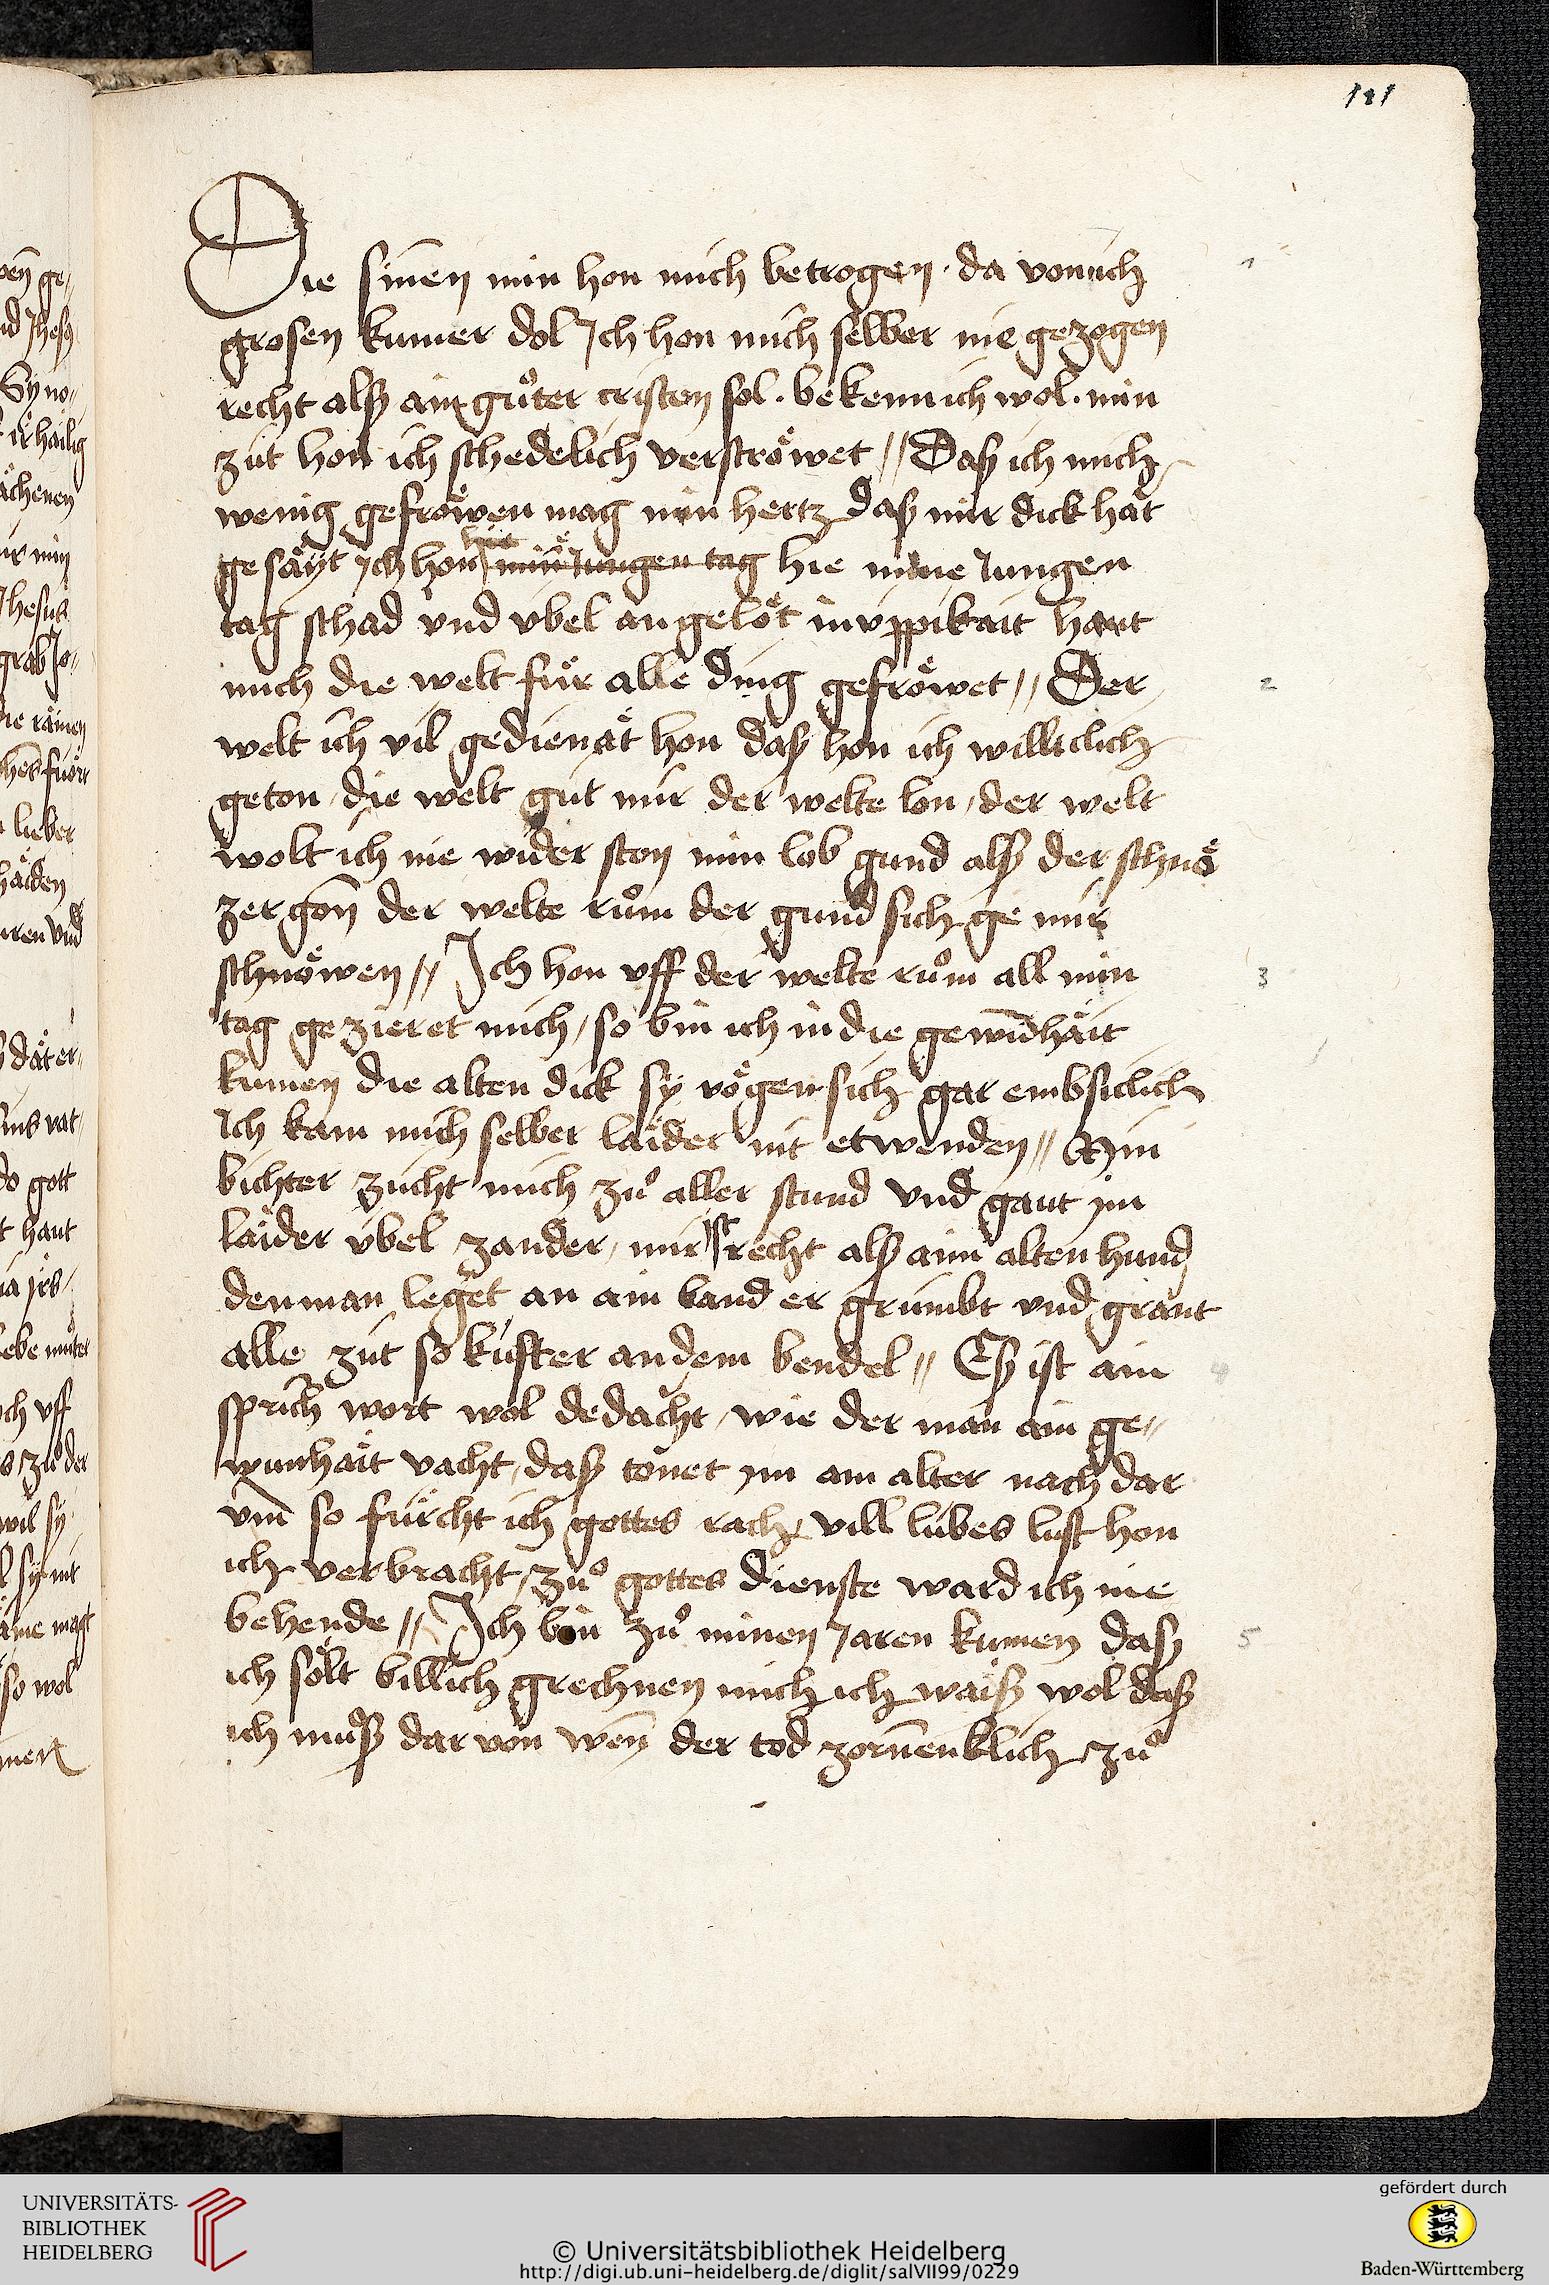 111
Die sinen min hon mich betrogen · da von ich
grosen kumer dol Jch hon mich selber nie gezogen
recht alß ain guͦter cristen sol · bekenn ich wol · min
zit hon ich schedelich verströwet // Daß ich mich
wenig gefröwen mag min hertz daß mir dick hät
gesäyt Jch hon min Jungen tag hie mine Jungen
tag schad vnd v́bel an gelöt in v́ppikait haut
mich die welt für alle ding gefröwet // Der
welt ich vil gedienät hon daß hon ich williclich
geton / die welt git mir der welte lon / der welt
wolt ich nie wider ston min lob gund alß der schnö
zergon̄ der welte ruͦm der gund sich ge mir
schnöwen // Jch hon vff der welte ruͦm all min
tag gezieret mich / so bin ich in die gewūhäit
kumen die alten dick sy vögen sich gar embsiclich
Jch kam mich selber laider nit etwenden // Min
bichter zücht mich zuͦ aller stund vnd gaut jm
laider v́bel zander / mir ist recht alß aim alten hund
den man leget an ain band er grimbt vnd graut
alle zit so kúfter an dem bendel // Eß ist ain
sprich wort wol dedacht / wie der man ain ge//
wunhäit vacht / daß tönet jm am alter nach dar
vm̄ so fürcht ich gottes rach / vill libes lust hon
ich verbracht / zuͦ gottes dienste ward ich nie
behende // Jch bin zuͦ minen Jaren kumen daß
ich sölt billich grechnen mich ich waiß wol daß
ich muͦß dar von wen̄ der tod zorn̄enklich zuͦ
1
2
3
4
5
UNIVERSITÄTS-
BIBLIOTHEK
HEIDELBERG
© Universitätsbibliothek Heidelberg
http://digi.ub.uni-heidelberg.de/diglit/salVII99/0229
gefördert durch
Baden-Württemberg